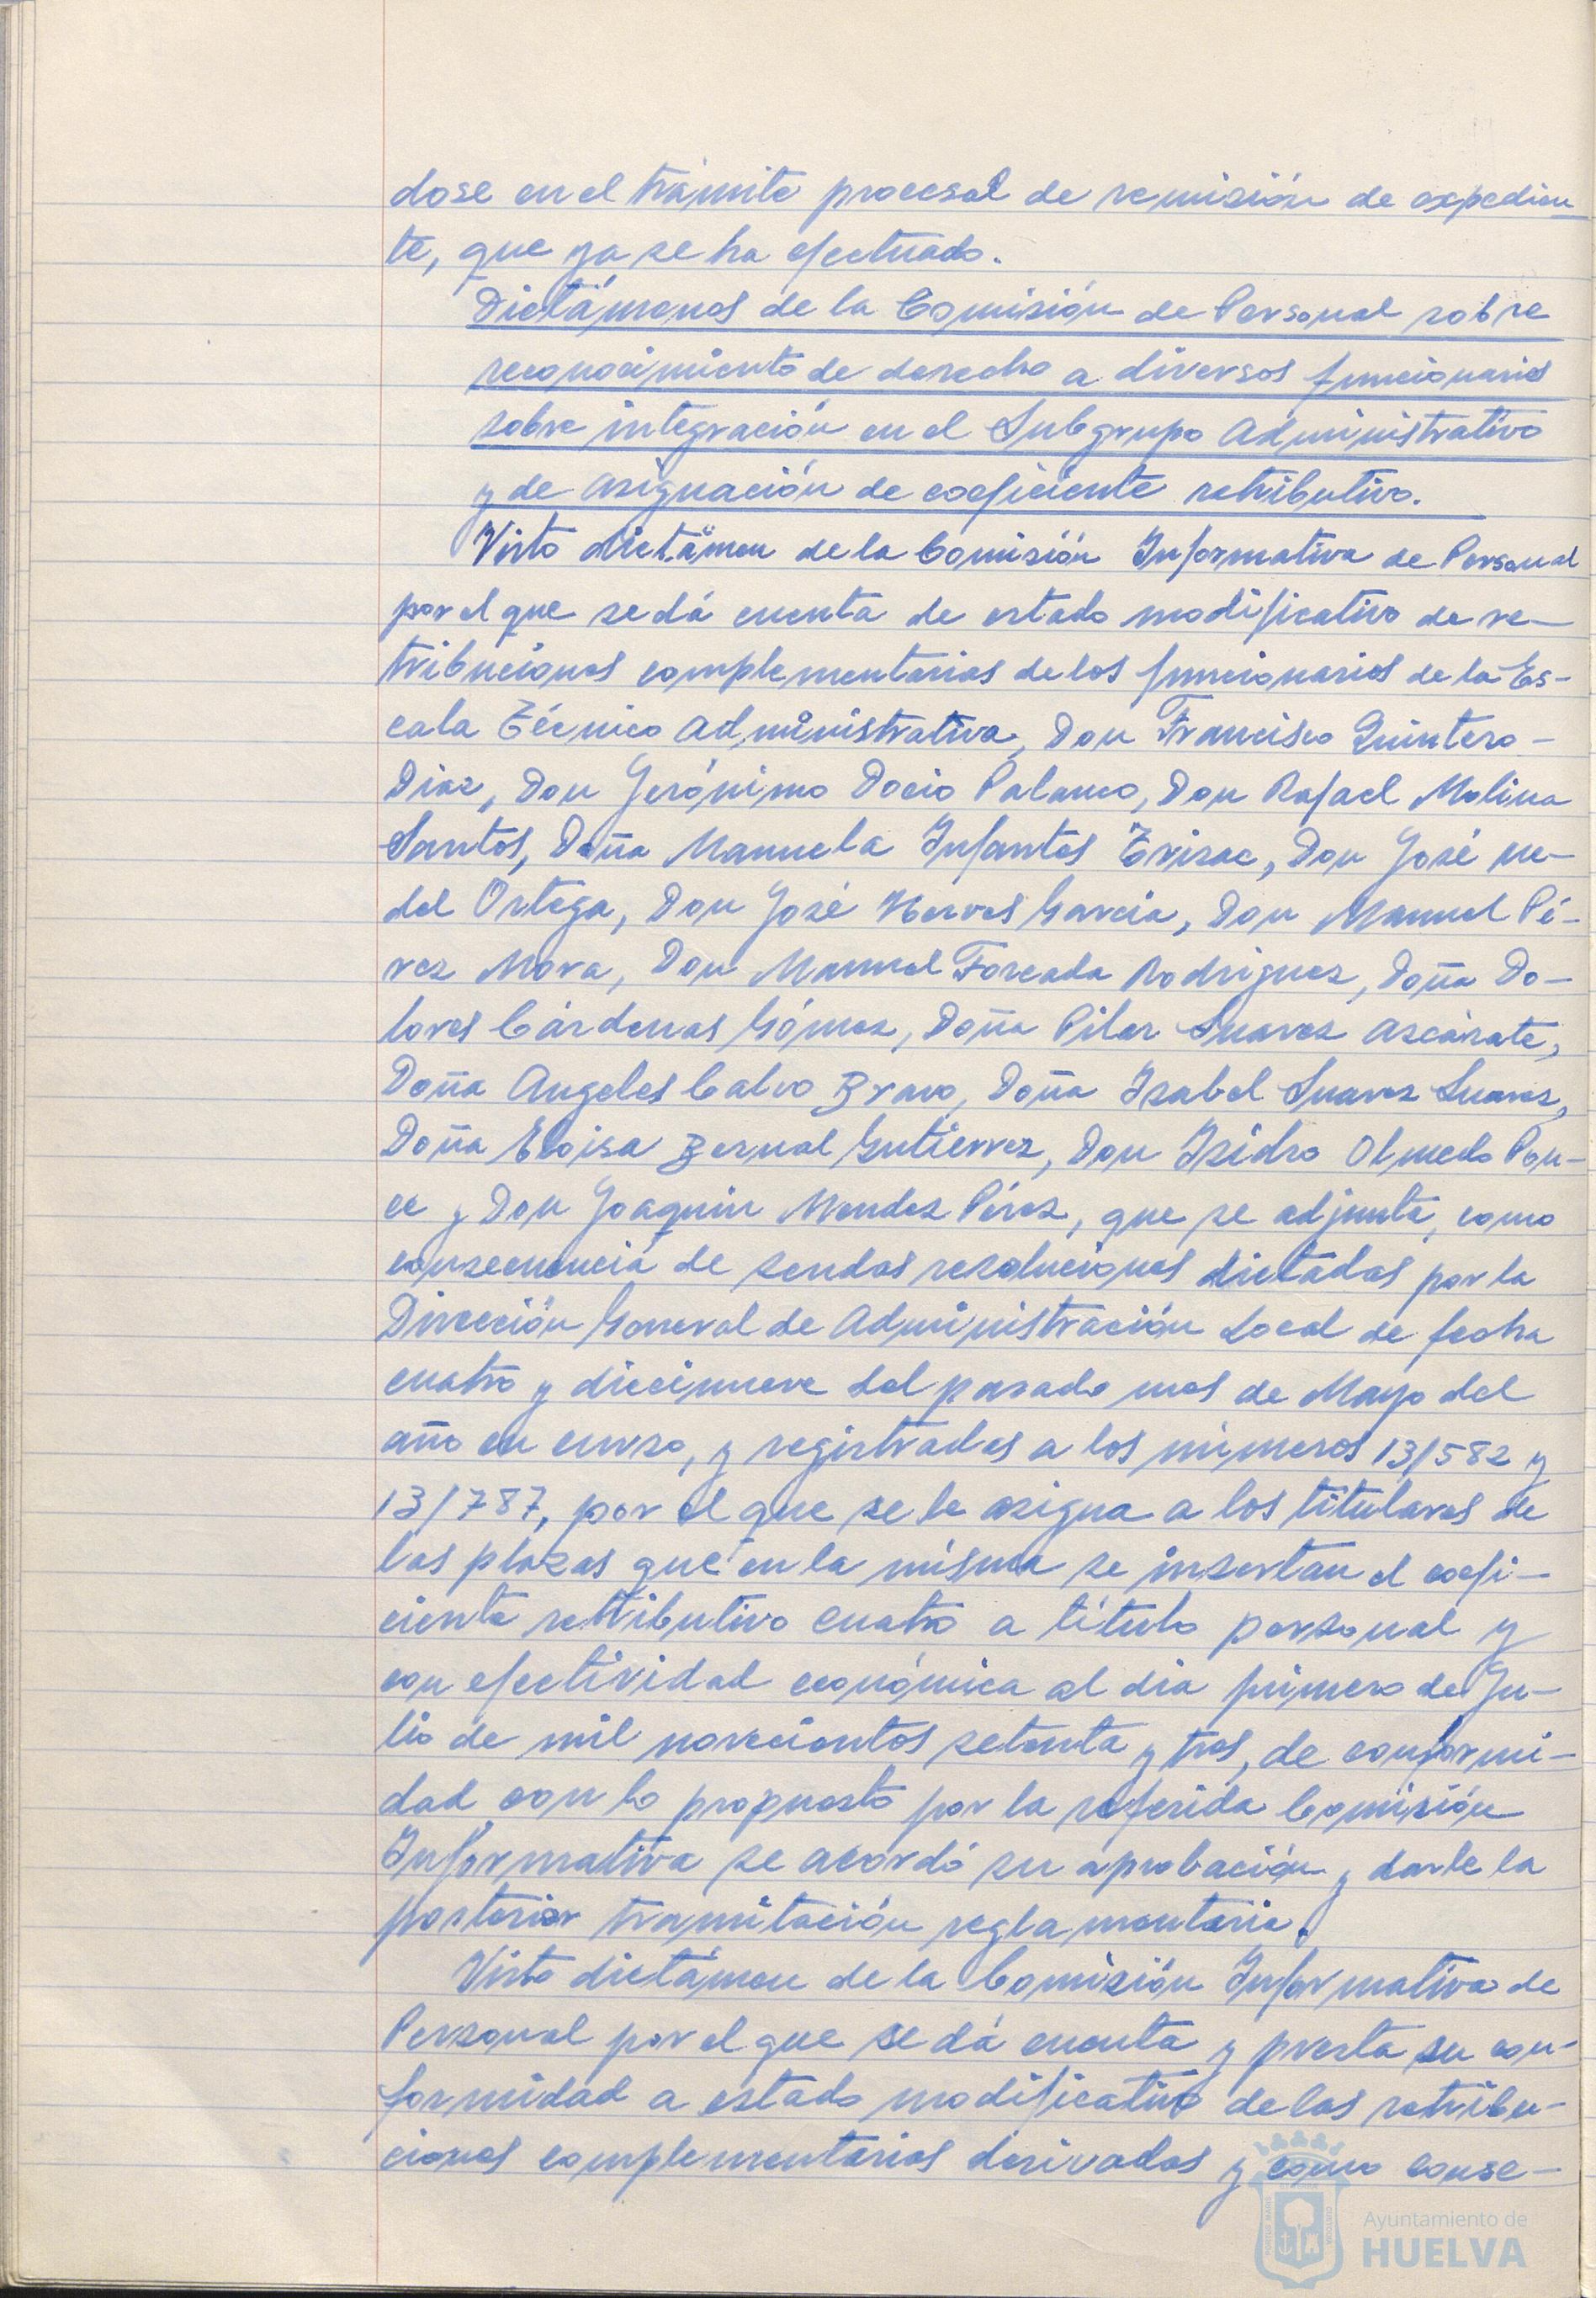 dose en el trámite procesal de remisión de expedien
te, que ya se ha efectuado.
Dictámenes de la Comisión de Personal sobre
reconocimiento de derecho a diversos funcionarios
sobre integración en el Subgrupo Administrativo
y de asignación de coeficiente retributivo.
Visto dictámen de la Comisión Informativa de Personal
por el que se dá cuenta de estado modificativo de re-
tribuciones complementarias de los funcionarios de la Es-
cala Técnico Administrativa, Don Francisco Quintero-
Diaz, Don Gerónimo Docio Palanco, Don Rafael Molina
Santos, Doña Manuela Infantes Erizac, Don José Me-
del Ortega, Don José Nerves Garcia, Don Manuel Pé-
rez Mora, Don Manuel Forcada Rodriguez, Doña Do-
lores Cárdenas Gómez, Doña Pilar Suarez Azcárate,
Doña Angeles Calvo Bravo, Doña Isabel Suarez Suarez,
Doña Eloisa Bernal Gutierrez, Don Isidro Olmedo Pon-
ce y Don Joaquin Mendez Pérez, que se adjunta, como
consecuencia de sendas resoluciones dictadas por la
Dirección General de Administración Local de fecha
cuatro y diecinueve del pasado mes de Mayo del
año en curso, y registradas a los números 13/582 y
13/787, por el que se le asigna a los titulares de
las plazas que en la misma se insertan el coefi-
ciente retributivo cuatro a título personal y
con efectividad económica al dia primero de Ju-
lio de mil novecientos setenta y tres, de conformi-
dad con lo propuesto por la referida Comisión
Informativa se acordó su aprobación y darle la
posterior tramitación reglamentaria.
Visto dictámen de la Comisión Informativa de
Personal por el que se dá cuenta y presta su con-
formidad a estado modificativo de las retribu-
ciones complementarias derivadas y como conse-
Ayuntamiento de
HUELVA